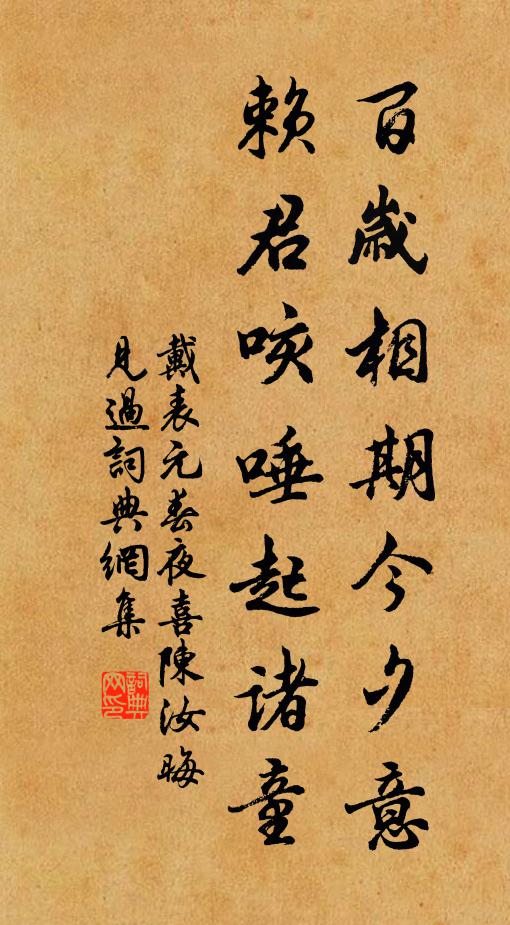 百歲相期今夕意
賴君咳唾起諸童
戴表元春夜喜陳汝晦
見過詞典網集
詞典網印